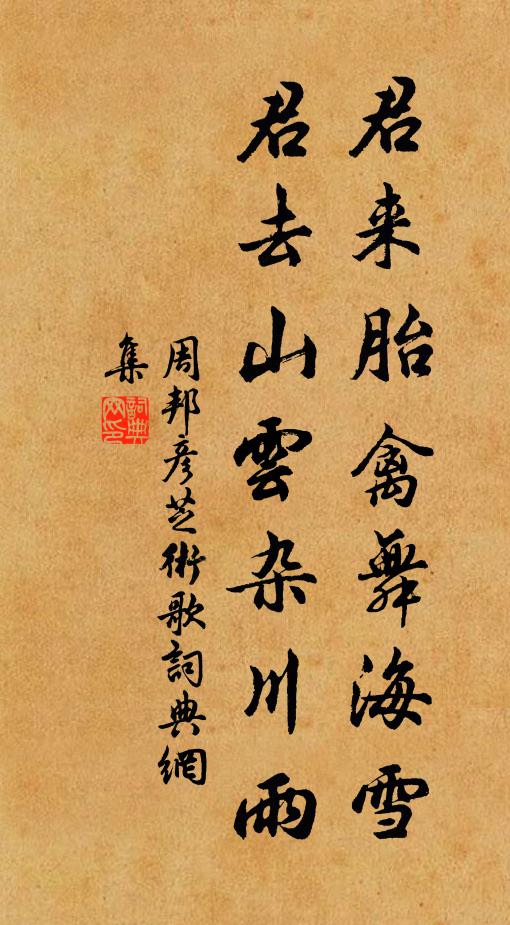 君来胎禽舞海雪
君去山雲杂川雨
周邦彦芝術歌詞典網
集
詞典網印